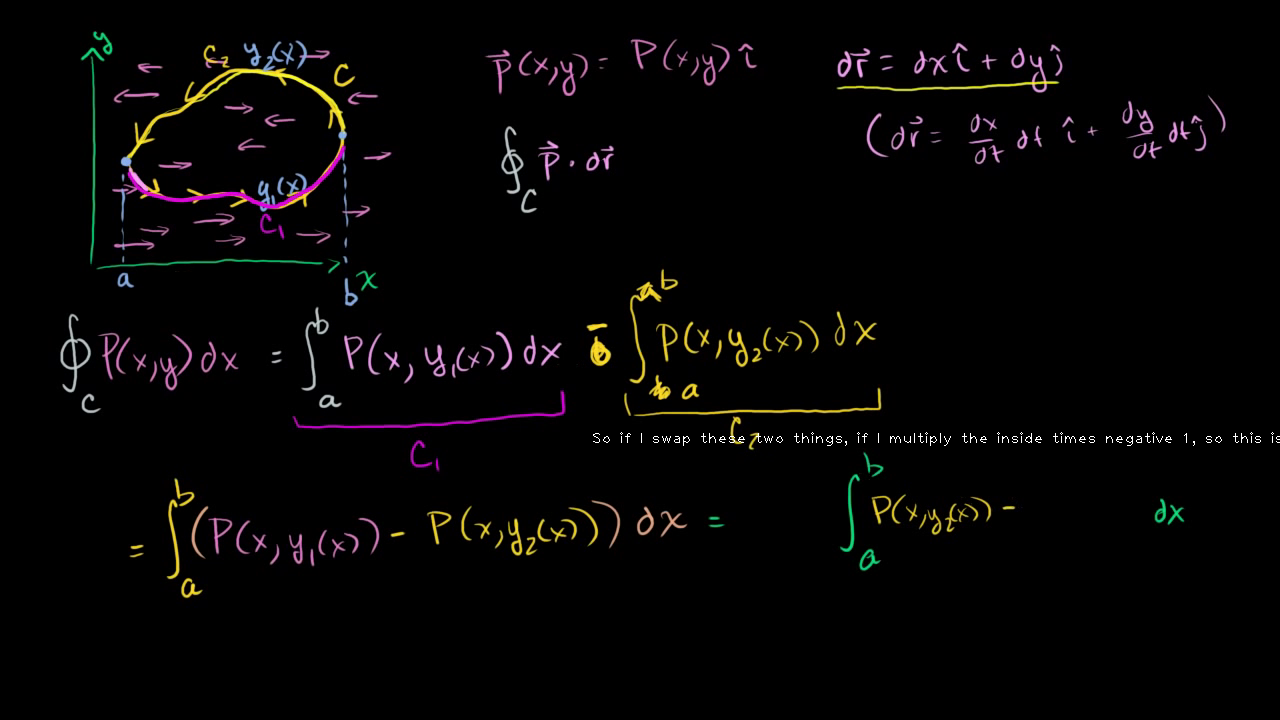 y
C₂ y₂(x)
C
y₁(x)
C₁
a
b
x
P⃗(x,y) = P(x,y) î
dr⃗ = dx î + dy ĵ
(dr⃗ = dx/dt dt î + dy/dt dt ĵ)
∮_C P⃗ · dr⃗
∮_C P(x,y) dx = ∫_a^b P(x, y₁(x)) dx - ∫_a^b P(x, y₂(x)) dx
C₁
C₂
So if I swap these two things, if I multiply the inside times negative 1, so this is
= ∫_a^b (P(x, y₁(x)) - P(x, y₂(x))) dx = ∫_a^b P(x, y₂(x)) - dx